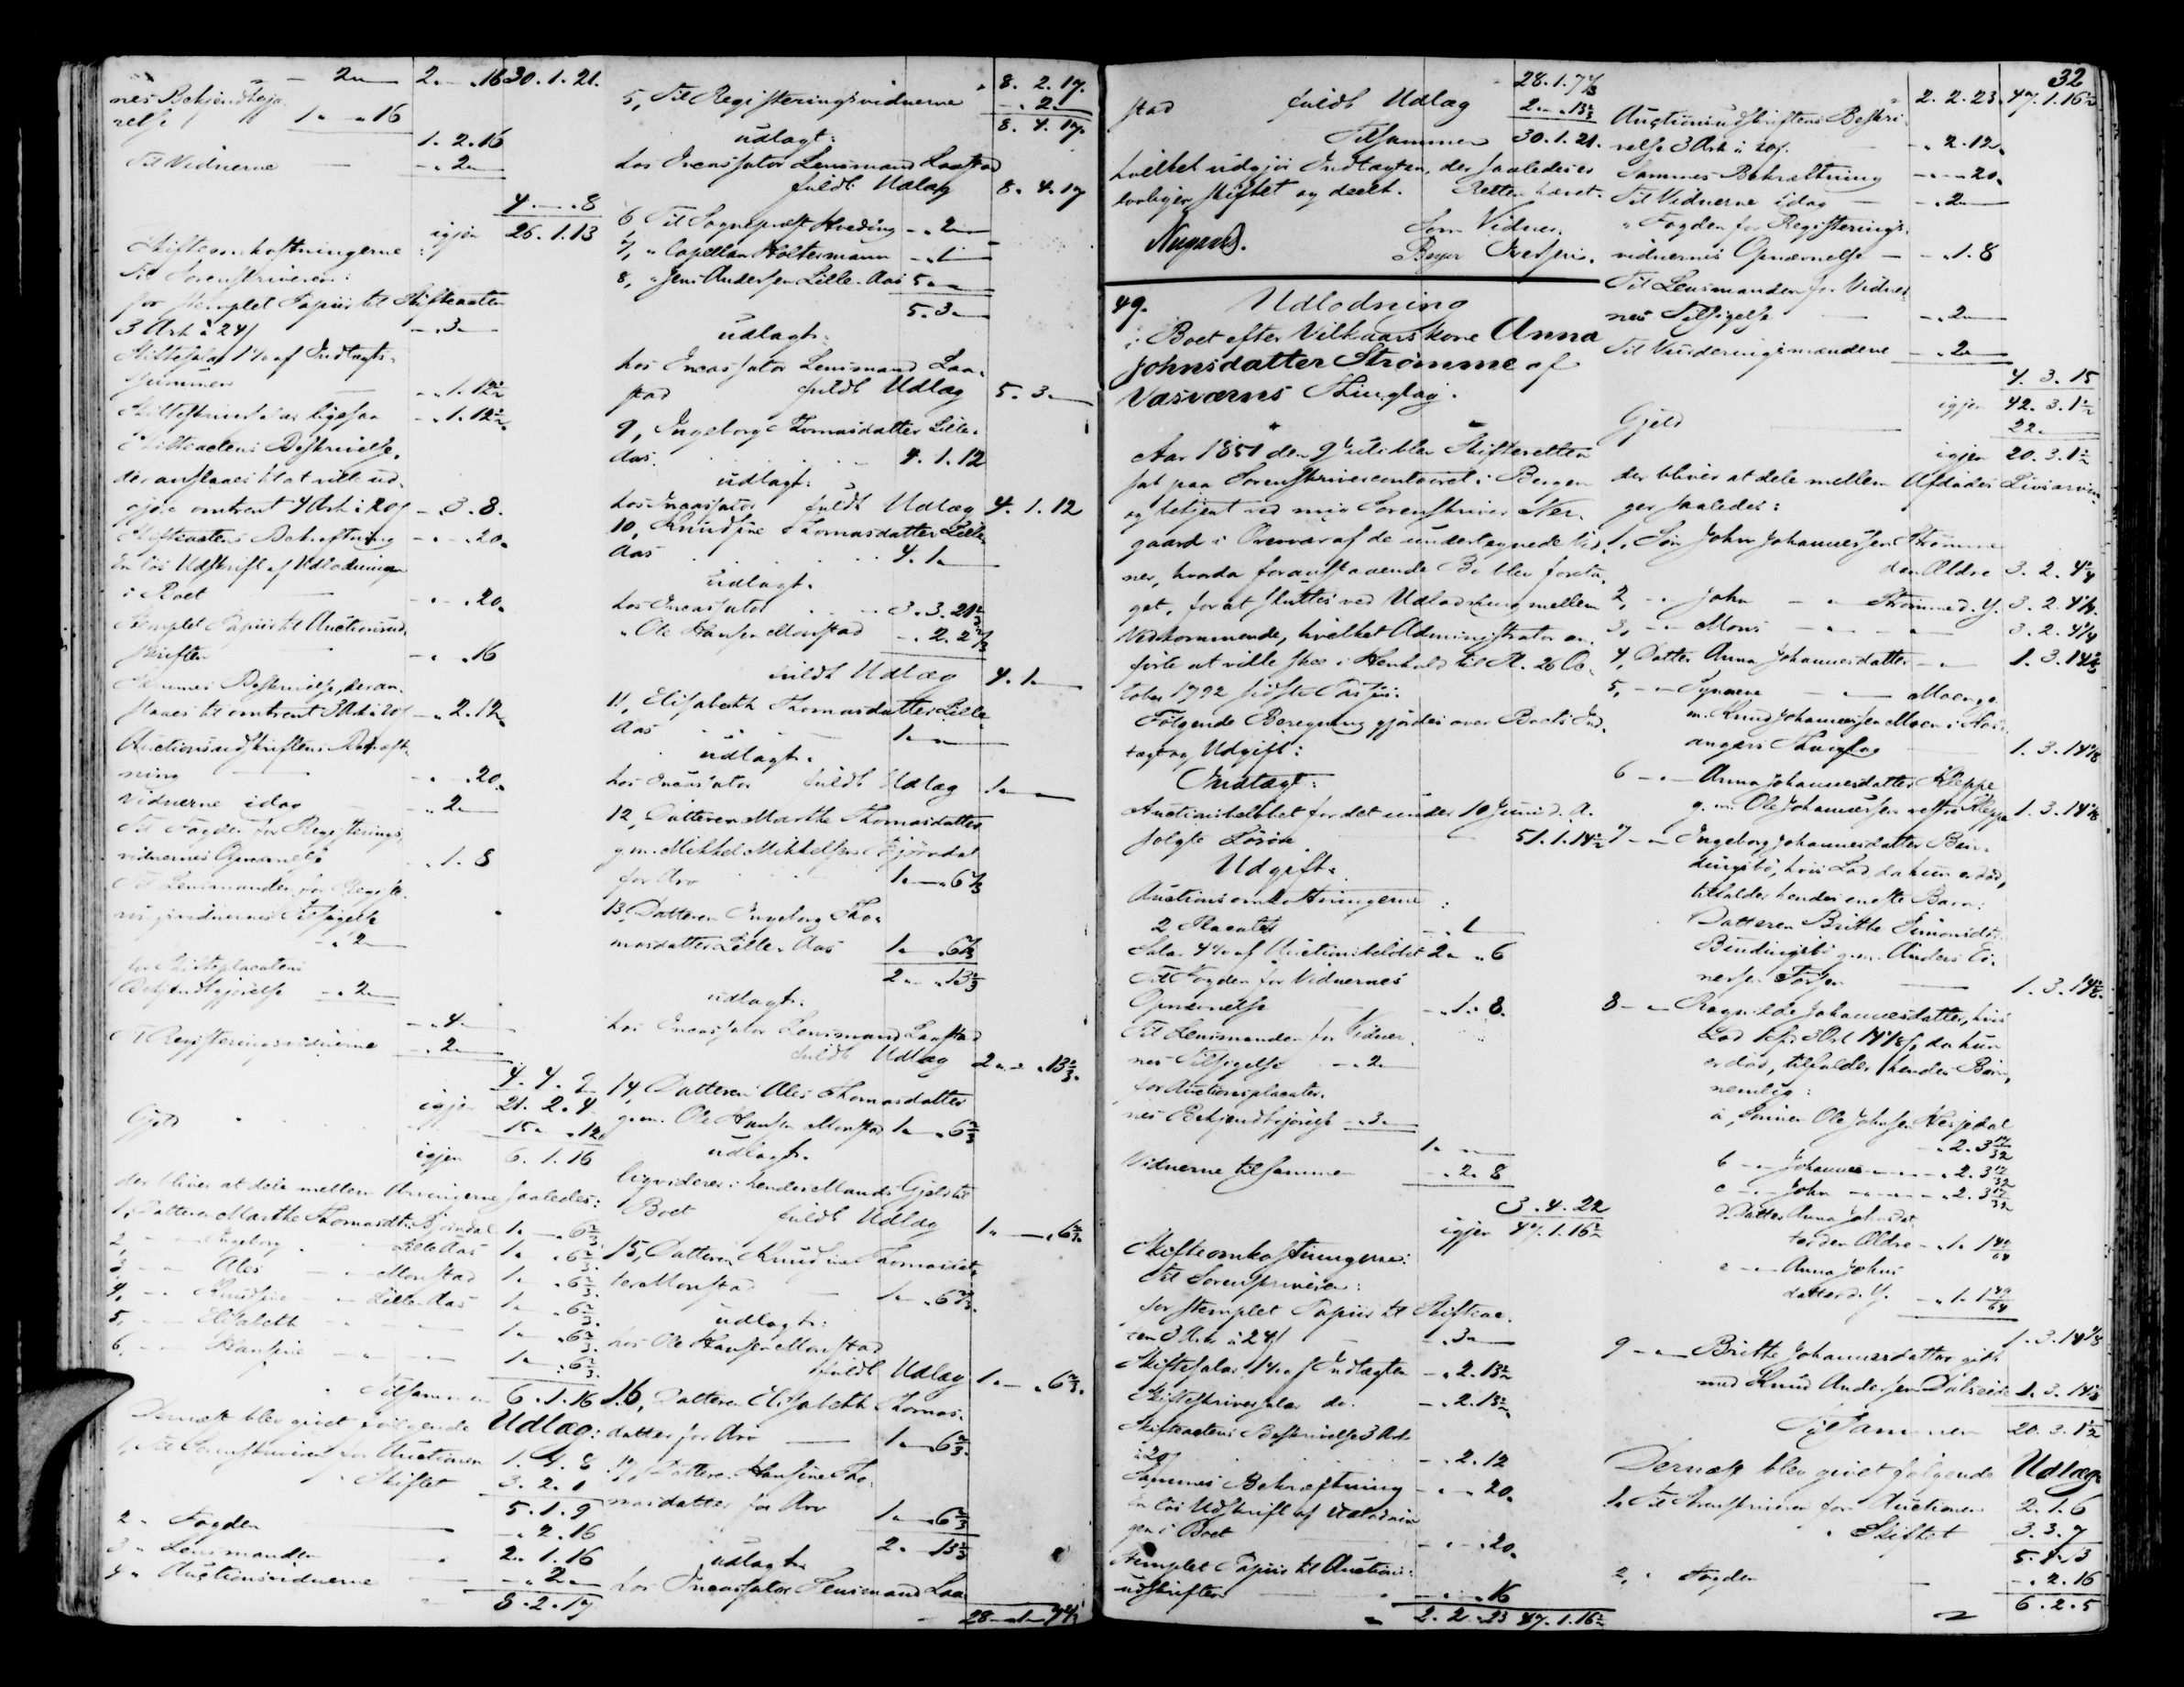 - 2 „ — 2 „ — „ 16 30. 1. 21.
nes Bekjendtgjø-
relse 1 „ — „ 16
1. 2. 16
Til Vidnerne — - „ 2 „ —
4. — „ 8
igjen 26. 1. 13
Skifteomkostningerne:
Til Sorenskriveren:
for stemplet Papiir til Skifteacten
3 Ark à 24 ſ - „ 3 „ —
Skiftesalar 1 % af Indtægts-
summen - „ 1. 12½
Skifteskriversalar ligesaa - „ 1. 12½
Skifteactens Beskrivelse,
der anslaaes til at ville ud-
gjøre omtrent 4 Ark à 20 ſ - „ 3. 8.
Skifteactens Bekræftning - „ - „ 20.
En løs Udskrift af Udlodningen
i Boet - „ - „ 20.
Stemplet Papiir til Auctionsud-
skriften - „ - „ 16
Sammes Beskrivelse, der an-
slaaes til omtrent 3 Ark à 20 ſ - „ 2. 12.
Auctionsudskriftens Bekræft-
ning - „ - „ 20.
Vidnerne idag - „ 2 „ —
Til Fogden for Registerings-
vidnernes Opnævnelse - „ 1. 8
Til Lensmanden for Registe-
ringsvidnernes Tilsigelse
- „ 2 „ —
for Skifteplacatens
Bekjendtgjørelse - „ 2 „ —
- „ 4 „ —
Til Registeringsvidnerne - „ 2 „ —
4. 4. 9
igjen 21. 2. 4
Gjeld 15 „ — „ 12
igjen 6. 1. 16
der bliver at dele mellem Arvingerne saaledes:
1, Datteren Marthe Thomasdtr. Bjørndal 1 „ — „ 6⅔
2, — „ — Ingeborg — „ — Lille Aas 1 „ — „ 6⅔
3, — „ — Ales — „ — Monstad 1 „ — „ 6⅔
4, — „ — Knudsine — „ — Lille Aas 1 „ — „ 6⅔
5, — „ — Elisabeth — „ — 1 „ — „ 6⅔
6, — „ — Hansine — „ — 1 „ — „ 6⅔
Tilsammen 6. 1. 16
Dernæst blev givet følgende Udlæg:
1, Til Sorenskriveren for Auctionen 1. 4. 8
„ Skiftet 3. 2. 1
5. 1. 9
2 „ Fogden - „ 2. 16
3 „ Lensmanden 2. 1. 16
4 „ Auctionsvidnerne - „ 2 „ —
8. 2. 17
8. 2. 17.
5, Til Registeringsvidnerne - „ 2 „ —
8. 4. 17.
udlagt:
hos Incassator Lensmand Laastad
fuldt Udlæg 8. 4. 17
6, Til Sognepræst Hveding - „ 2 „ —
7, „ Capellan Holtermann - „ 1 „ —
8, „ Jens Andersen Lille-Aas 5 „ — „ —
5. 3 „ —
udlagt:
hos Incassator Lensmand Laa-
stad fuldt Udlæg 5. 3 „ —
9, Ingeborg Thomasdatter Lille-
Aas. 4. 1. 12
udlagt:
hos Incassator fuldt Udlæg 4. 1. 12
10, Knudsine Thomasdatter Lille
Aas 4. 1 „ —
udlagt:
hos Incassator 3. 3. 21⅔
„ Ole Hansen Monstad - „ 2. 2⅓
fuldt Udlæg 4. 1 „ —
11, Elisabeth Thomasdatter Lille
Aas 1 „ — „ —
udlagt:
hos Incassator fuldt Udlæg 1 „ — „ —
12, Datteren Marthe Thomasdatter
g. m. Mikkel Mikkelsen Bjørndal
for Arv 1 „ — „ 6⅔
13, Datteren Ingeborg Tho-
masdatter Lille-Aas 1 „ — „ 6⅔
2 „ — „ 13⅓
udlagt:
hos Incassator Lensmand Laastad
fuldt Udlæg 2 „ — „ 13⅓.
14, Datteren Ales Thomasdatter
g. m. Ole Hansen Monstad 1 „ — „ 6⅔
udlagt:
liqviderer i hendes Mands Gjeld til
Boet fuldt Udlæg 1 „ — „ 6⅔.
15, Datteren Knudsine Thomasdat-
ter Monstad 1 „ — „ 6⅔.
udlagt:
hos Ole Hansen Monstad
fuldt Udlæg 1 „ — „ 6⅔.
16, Datteren Elisabeth Thomas-
datter for Arv 1 „ — „ 6⅔.
17, Datteren Hansine Tho-
masdatter for Arv 1 „ — „ 6⅔
2 „ — „ 13⅓
udlagt:
hos Incassator Lensmand Laa-
28 „ 1 „ 7⅓
28. 1. 7⅔
stad fuldt Udlæg 2 „ — „ 13⅓
Tilsammen 30. 1. 21.
hvilket udgjør Indtægten, der saaledes er
lovligen skiftet og deelt. Retten hævet.
Som Vidner.
Beyer
49. Udlodning
i Boet efter Vilkaarskone Anna
Johnsdatter Strømme af
Vasværns Thinglag.
Aar 1851 den 9 Juli blev Skifteretten
sat paa Sorenskrivercontoiret i Bergen
og betjent ved mig Sorenskriver Ner-
gaard i Overvær af de undertegnede Vid-
ner, hvorda foranstaaende Bo blev foreta-
get, for at sluttes ved Udlodning mellem
Vedkommende, hvilket Administrator an-
førte at ville skee i Henhold til Pl. 26 Oc-
tober 1792 sidste Passus.
Følgende Beregning gjordes over Boets Ind-
tægt og Udgift:
Indtægt:
Auctionsbeløbet for det under 10 Juni d. A.
solgte Løsøre 51. 1. 14½
Udgift:
Auctionsomkostningerne:
2 Placater - „ 1 „ —
Salar 4 % af Auctionsbeløbet 2 „ — „ 6
Til Fogden for Vidnernes
Opnævnelse - „ 1. 8.
Til Lensmanden for Vidner-
nes Tilsigelse - „ 2 „ —
for Auctionsplacater-
nes Bekjendtgjørelse - „ 3 „ —
1 „ — „ —
Vidnerne tilsammen - „ 2. 8
3. 4. 22
igjen 47. 1. 16½
Skifteomkostningerne:
Til Sorenskriveren:
for stemplet Papiir til Skifteac-
ten 3 Ark à 24 ſ - „ 3 „ —
Skiftesalar 1 % af Indtægten - „ 2. 13½
Skifteskriversalar do. - „ 2. 13½
Skifteactens Beskrivelse 3 Ark
à 20 ſ - „ 2. 12
Sammes Bekræftning - „ - „ 20.
En løs Udskrift af Udlodnin-
gen i Boet - „ - „ 20.
Stemplet Papiir til Auctions-
udskriften - „ - „ 16
2. 2. 23 47. 1. 16½
32
2. 2. 23. 47. 1. 16½
Auctionsudskriftens Beskri-
velse 3 Ark à 20 ſ. - „ 2. 12.
Sammes Bekræftning - „ - „ 20.
Til Vidnerne idag - „ 2 „ —
„ Fogden for Registerings-
vidnernes Opnævnelse - „ 1. 8
Til Lensmanden for Vidner-
nes Tilsigelse - „ 2 „ —
Til Vurderingsmændene - „ 2 „ —
4. 3. 15
igjen 42. 3. 1½
Gjeld 22 „ —
igjen 20. 3. 1½
der bliver at dele mellem Afdødes Livsarvin-
ger saaledes:
1, Søn John Johannessen Strømme
den Ældre 3. 2. 4¼
2, — „ — John — „ — Strømme d. Y. 3. 2. 4¼
3, — „ — Mons — „ — „ — 3. 2. 4¼
4, Datter Anna Johannesdatter — „ — 1. 3. 14⅛
5, — „ — Synneve — „ — Moen g.
m. Knud Johannessen Moen i Hos-
angers Thinglag 1. 3. 14⅛
6 — „ — Anna Johannesdatter Kleppe
g. m. Ole Johannessen Kleppe 1. 3. 14⅛
7 — „ — Ingeborg Johannesdatter Bin-
dingsbø, hvis Lod, da hun er død,
tilfalder hendes eneste Barn:
Datteren Brithe Simonsdtr.
Bindingsbø g. m. Anders
1. 3. 14⅛.
8 — „ — Ragnilde Johannesdatter, hvis
Lod 1 Spd. 3 Ort 14⅛ ſ, da hun
er død, tilfalder hendes Børn,
nemlig:
a, Sønnen Ole Johnsen Hesjedal
- „ 2. 3 17/32
b — „ — Johannes — „ — „ 2. 3 17/32
c — „ — John — „ — „ 2. 3 17/32
d. Datter Anna Johnsdat-
ter den Ældre - „ 1. 1 49/64
e — „ — Anna Johns-
datter d. Y. - „ 1. 1 49/64
1. 3. 14⅛
9 — „ — Brithe Johannesdatter gift
med Knud Andersen Dalseide 1. 3. 14⅛
Tilsammen 20. 3. 1½
Dernæst blev givet følgende Udlæg:
1, Til Sorenskriveren for Auctionen 2. 1. 6
„ Skiftet 3. 3. 7
5. 4. 13
2, „ Fogden - „ 2. 16
6. 2. 5